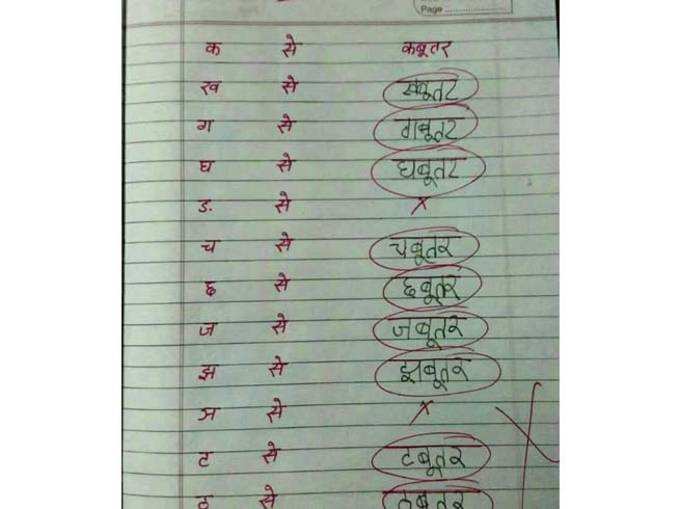 Page
क से कबूतर
ख से खबूतर
ग से गबूतर
घ से घबूतर
ङ. से ×
च से चबूतर
छ से छबूतर
ज से जबूतर
झ से झबूतर
ञ से ×
ट से टबूतर
ठ से ठबूतर